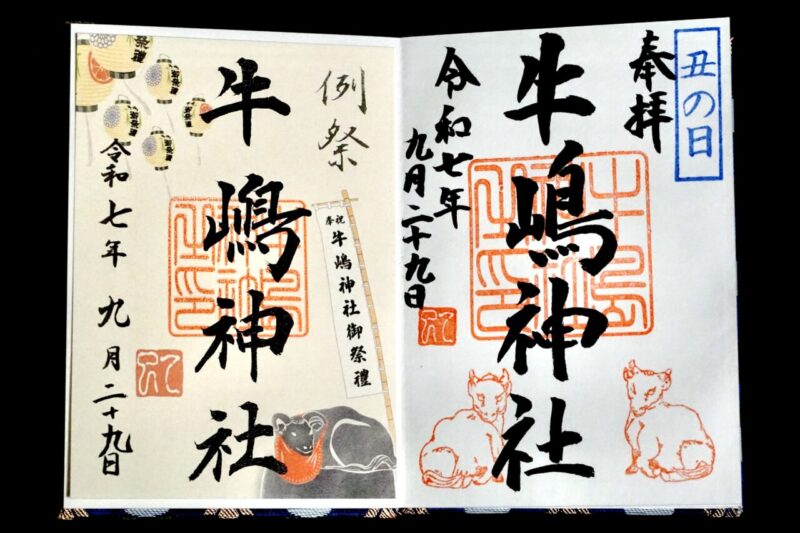 丑の日
奉拝
牛嶋神社
令和七年
九月二十九日
例祭
奉祝 牛嶋神社御祭禮
牛嶋神社
令和七年 九月二十九日
御祭禮